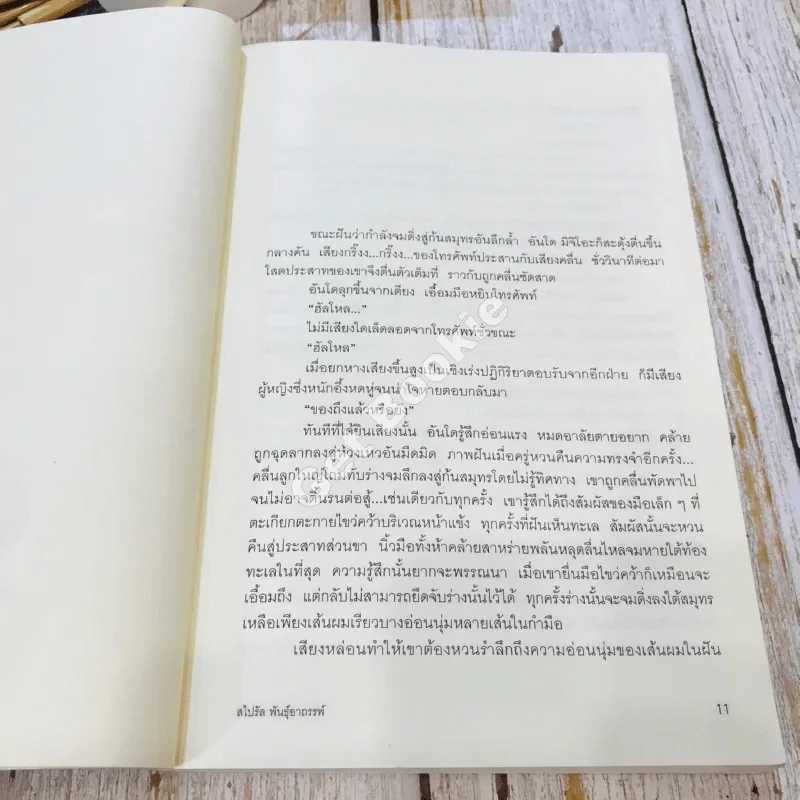 ขณะฝันว่ากำลังจมดิ่งสู่ก้นสมุทรอันลึกล้ำ อันโด มิจิโอะก็สะดุ้งตื่นขึ้น
กลางคัน เสียงกริ๊งงง...กริ๊งงง...ของโทรศัพท์ประสานกับเสียงคลื่น ชั่ววินาทีต่อมา
โสตประสาทของเขาจึงตื่นตัวเต็มที่ ราวกับถูกคลื่นซัดสาด
อันโดลุกขึ้นจากเตียง เอื้อมมือหยิบโทรศัพท์
“ฮัลโหล...”
ไม่มีเสียงใดเล็ดลอดจากโทรศัพท์ชั่วขณะ
“ฮัลโหล”
เมื่อยกหางเสียงขึ้นสูงเป็นเชิงเร่งปฏิกิริยาตอบรับจากอีกฝ่าย ก็มีเสียง
ผู้หญิงซึ่งหนักอึ้งหดหู่จนน่าใจหายตอบกลับมา
“ของถึงแล้วหรือยัง”
ทันทีที่ได้ยินเสียงนั้น อันโดรู้สึกอ่อนแรง หมดอาลัยตายอยาก คล้าย
ถูกฉุดลากลงสู่ห้วงเหวอันมืดมิด ภาพฝันเมื่อครู่หวนคืนความทรงจำอีกครั้ง...
คลื่นลูกใหญ่โถมทับร่างจมลึกลงสู่ก้นสมุทรโดยไม่รู้ทิศทาง เขาถูกคลื่นพัดพาไป
จนไม่อาจดิ้นรนต่อสู้...เช่นเดียวกับทุกครั้ง เขารู้สึกได้ถึงสัมผัสของมือเล็ก ๆ ที่
ตะเกียกตะกายไขว่คว้าบริเวณหน้าแข้ง ทุกครั้งที่ฝันเห็นทะเล สัมผัสนั้นจะหวน
คืนสู่ประสาทส่วนขา นิ้วมือทั้งห้าคล้ายสาหร่ายพลันหลุดลื่นไหลจมหายใต้ท้อง
ทะเลในที่สุด ความรู้สึกนั้นยากจะพรรณนา เมื่อเขายื่นมือไขว่คว้าก็เหมือนจะ
เอื้อมถึง แต่กลับไม่สามารถยึดจับร่างนั้นไว้ได้ ทุกครั้งร่างนั้นจะจมดิ่งลงใต้สมุทร
เหลือเพียงเส้นผมเรียวบางอ่อนนุ่มหลายเส้นในกำมือ
เสียงหล่อนทำให้เขาต้องหวนรำลึกถึงความอ่อนนุ่มของเส้นผมในฝัน
สไปรัล พันธุ์อาถรรพ์ 11
Get Bookie